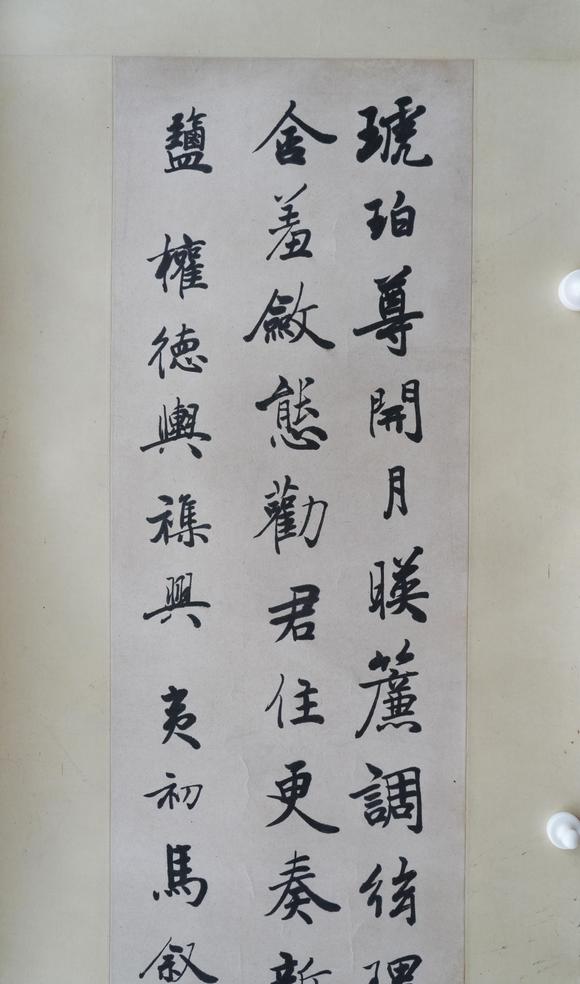 琥珀尊開月暎簾調絃理
含羞斂態勸君住更奏新
鹽 權德輿襍興 夷初馬叙